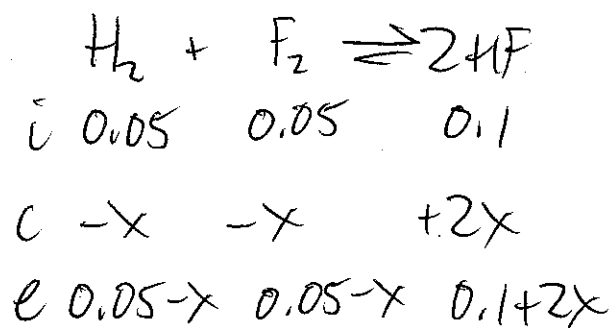 H₂ + F₂ ⇌ 2HF
i 0.05 0.05 0.1
c -x -x +2x
e 0.05-x 0.05-x 0.1+2x